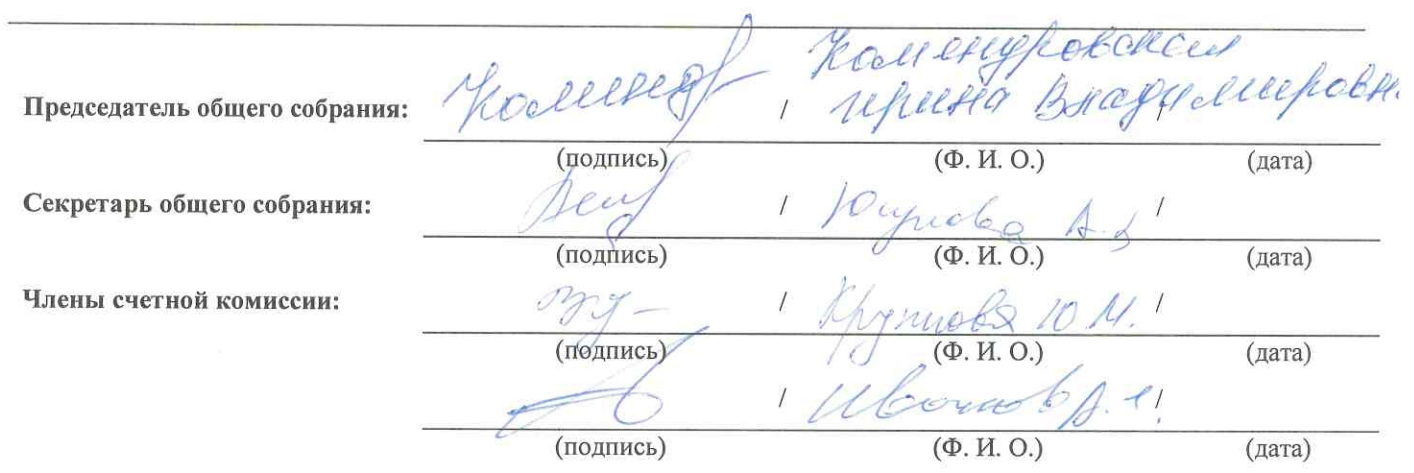 Комендровская
Председатель общего собрания: Коменд / Ирина Владимировн. /
(подпись) (Ф. И. О.) (дата)
Секретарь общего собрания: / А. /
(подпись) (Ф. И. О.) (дата)
Члены счетной комиссии: / Крупнова Ю. М. /
(подпись) (Ф. И. О.) (дата)
/ /
(подпись) (Ф. И. О.) (дата)